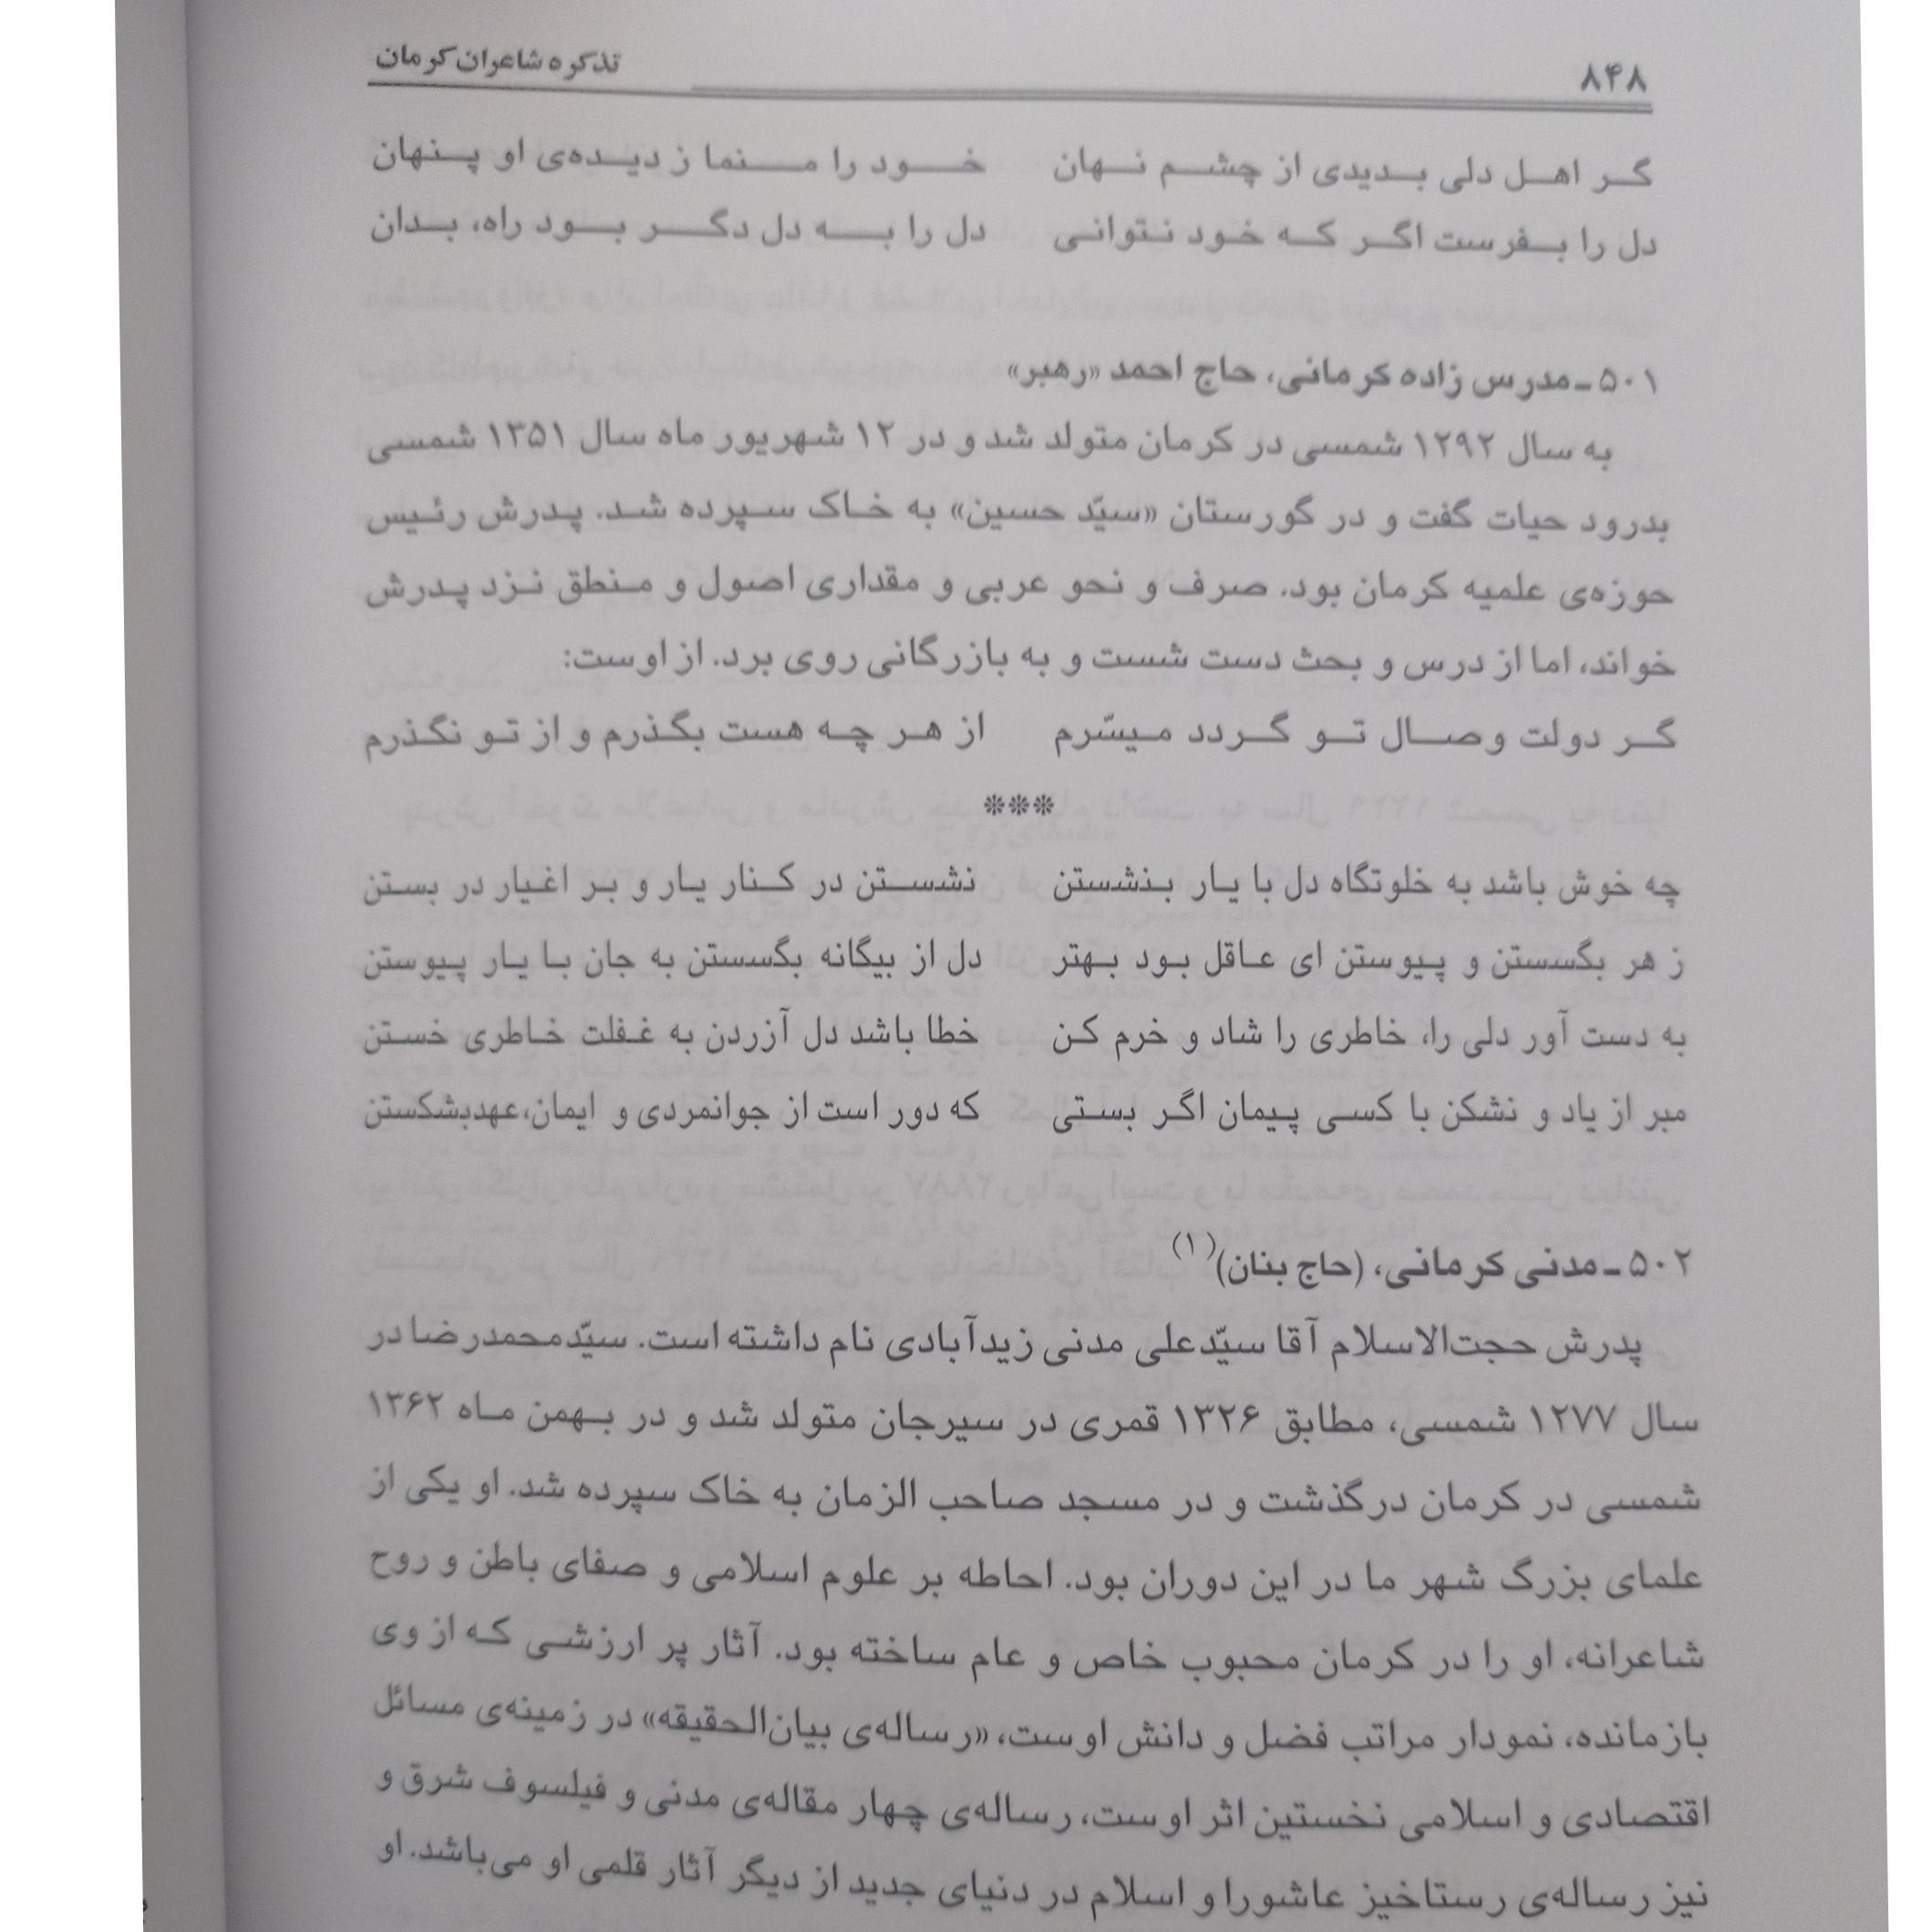 ۸۴۸ تذکره شاعران کرمان
گر اهل دلی بدیدی از چشم نهان خود را منما ز دیده‌ی او پنهان
دل را بفرست اگر که خود نتوانی دل را به دل دگر بود راه، بدان
۵۰۱ ـ مدرس زاده کرمانی، حاج احمد «رهبر»
به سال ۱۲۹۲ شمسی در کرمان متولد شد و در ۱۲ شهریور ماه سال ۱۳۵۱ شمسی
بدرود حیات گفت و در گورستان «سیّد حسین» به خاک سپرده شد. پدرش رئیس
حوزه‌ی علمیه کرمان بود. صرف و نحو عربی و مقداری اصول و منطق نزد پدرش
خواند، اما از درس و بحث دست شست و به بازرگانی روی برد. از اوست:
گر دولت وصال تو گردد میسّرم از هر چه هست بگذرم و از تو نگذرم
***
چه خوش باشد به خلوتگاه دل با یار بنشستن نشستن در کنار یار و بر اغیار در بستن
ز هر بگسستن و پیوستن ای عاقل بود بهتر دل از بیگانه بگسستن به جان با یار پیوستن
به دست آور دلی را، خاطری را شاد و خرم کن خطا باشد دل آزردن به غفلت خاطری خستن
مبر از یاد و نشکن با کسی پیمان اگر بستی که دور است از جوانمردی و ایمان،عهدبشکستن
۵۰۲ ـ مدنی کرمانی، (حاج بنان)(۱)
پدرش حجت‌الاسلام آقا سیّدعلی مدنی زیدآبادی نام داشته است. سیّدمحمدرضا در
سال ۱۲۷۷ شمسی، مطابق ۱۳۲۶ قمری در سیرجان متولد شد و در بهمن ماه ۱۳۶۲
شمسی در کرمان درگذشت و در مسجد صاحب الزمان به خاک سپرده شد. او یکی از
علمای بزرگ شهر ما در این دوران بود. احاطه بر علوم اسلامی و صفای باطن و روح
شاعرانه، او را در کرمان محبوب خاص و عام ساخته بود. آثار پر ارزشی که از وی
بازمانده، نمودار مراتب فضل و دانش اوست، «رساله‌ی بیان‌الحقیقه» در زمینه‌ی مسائل
اقتصادی و اسلامی نخستین اثر اوست، رساله‌ی چهار مقاله‌ی مدنی و فیلسوف شرق و
نیز رساله‌ی رستاخیز عاشورا و اسلام در دنیای جدید از دیگر آثار قلمی او می‌باشد. او